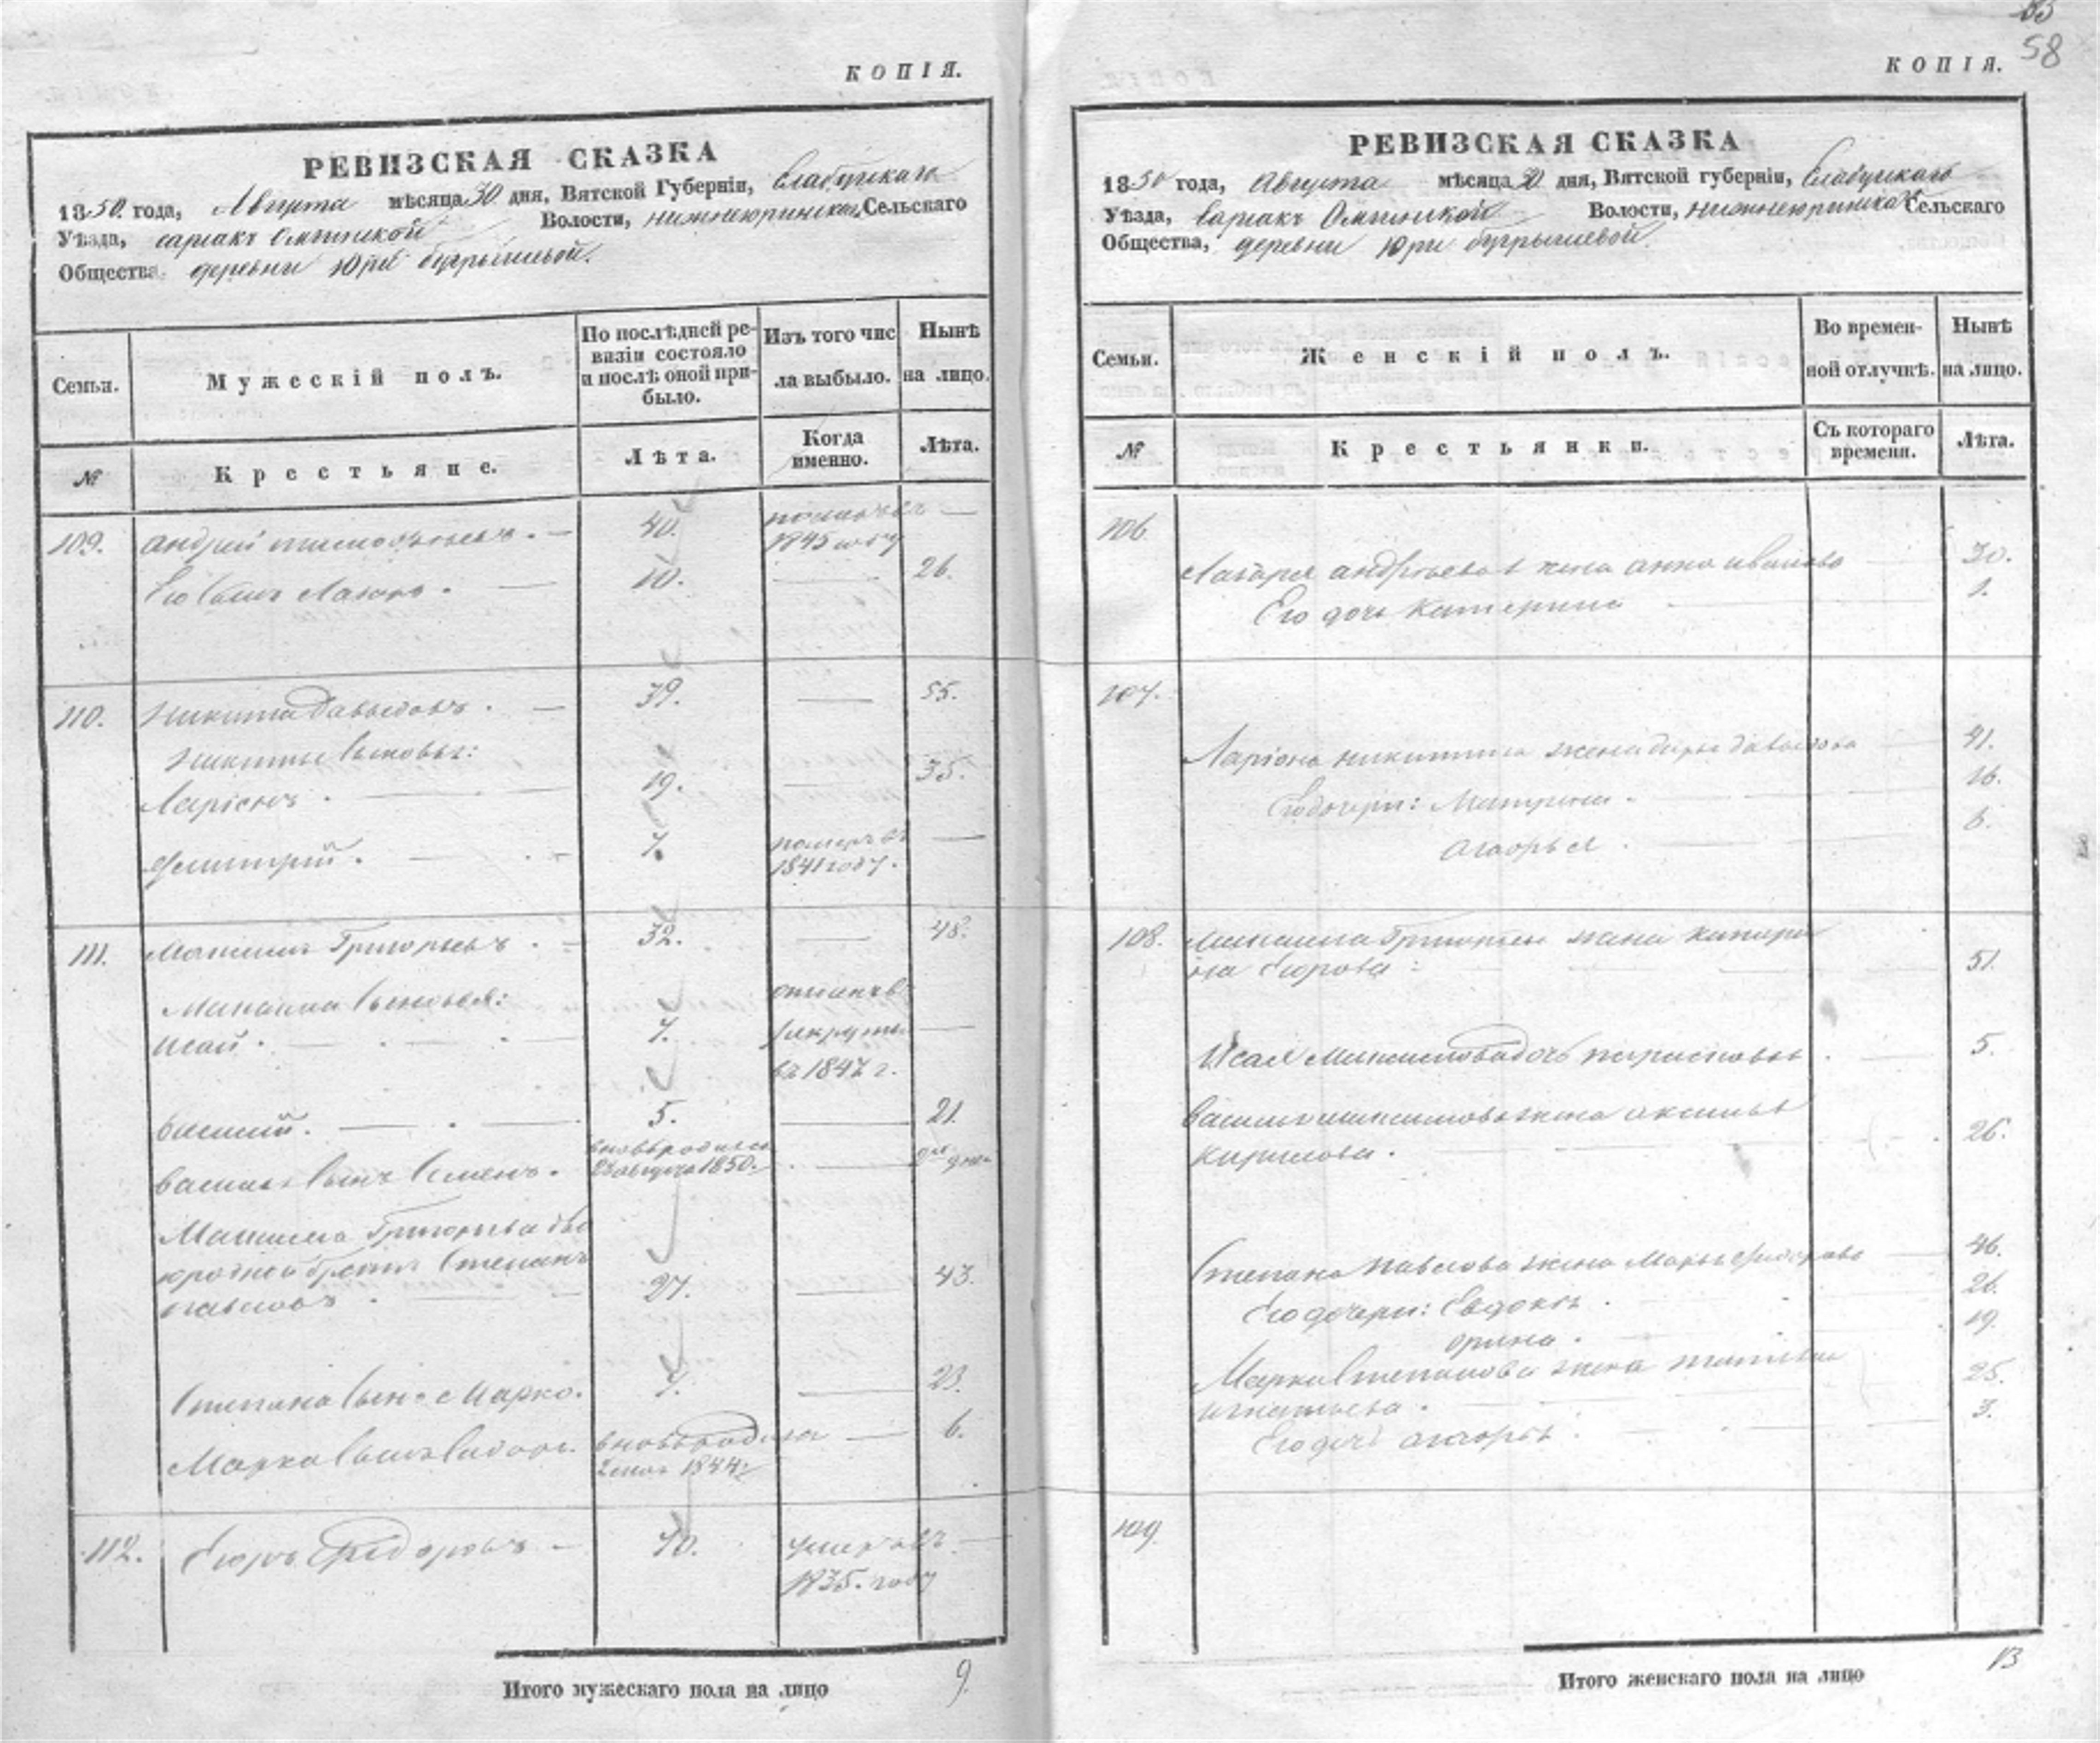 58
КОПІЯ.
РЕВИЗСКАЯ СКАЗКА
1850 года, Августа мѣсяца 30 дня, Вятской Губерніи, Елабужскаго
Уѣзда, Волости, Сельскаго
Общества, деревни Юри
Семьи.
Мужескій полъ.
По послѣдней ре-
визіи состояло
и послѣ оной при-
было.
Изъ того чис
ла выбыло.
Нынѣ
на лицо.
№
Крестьяне.
Лѣта.
Когда
именно.
Лѣта.
109. Андрей 40.
1845 году
Его сынъ Лазарь. 10. 26.
110. Никита Давыдовъ. 39. 55.
Никиты сыновья:
Ларіонъ. 19. 35.
Дмитрій. 7. померъ въ
1841 году.
111. Максимъ Григорьевъ. 32. 48.
Максима сыновья:
Исай. 7. рекруты
въ 1847 г.
Василій. 5. 21.
Василья сынъ Семенъ. вновьродился
28 августа 1850. 2 дня
Максима Григорьева дво
юродной братъ Степанъ
Павловъ. 27. 43.
Степана сынъ Марко. 7. 23.
Марка сынъ вновьродился 6.
1844
112. Егоръ Федоровъ 70. умеръ въ
1835. году
Итого мужескаго пола на лицо 9.
КОПІЯ.
РЕВИЗСКАЯ СКАЗКА
1850 года, Августа мѣсяца 30 дня, Вятской губерніи, Елабужскаго
Уѣзда, Волости, Сельскаго
Общества, деревни Юри
Семьи.
Женскій полъ.
Во времен-
ной отлучкѣ.
Нынѣ
на лицо.
№
Крестьянки.
Съ котораго
времени.
Лѣта.
106.
Лазаря Андреева жена Анна Иванова 30.
Его дочь Катерина 1.
107.
Ларіона Никитина жена Дарья Давыдова 41.
Его дочери: Матрена. 16.
Агафья. 6.
108. Максима Григорьева жена Катери
на Егорова: 51.
Исая Максимова дочь 5.
Василья Максимова жена Аксинья
Кирилова. 26.
Степана Павлова жена Марья Федорова 46.
Его дочери: Евдокія. 26.
Орина. 19.
Марка Степанова жена Татьяна
Игнатьева. 25.
Его дочь Агафья 3.
109.
Итого женскаго пола на лицо 13